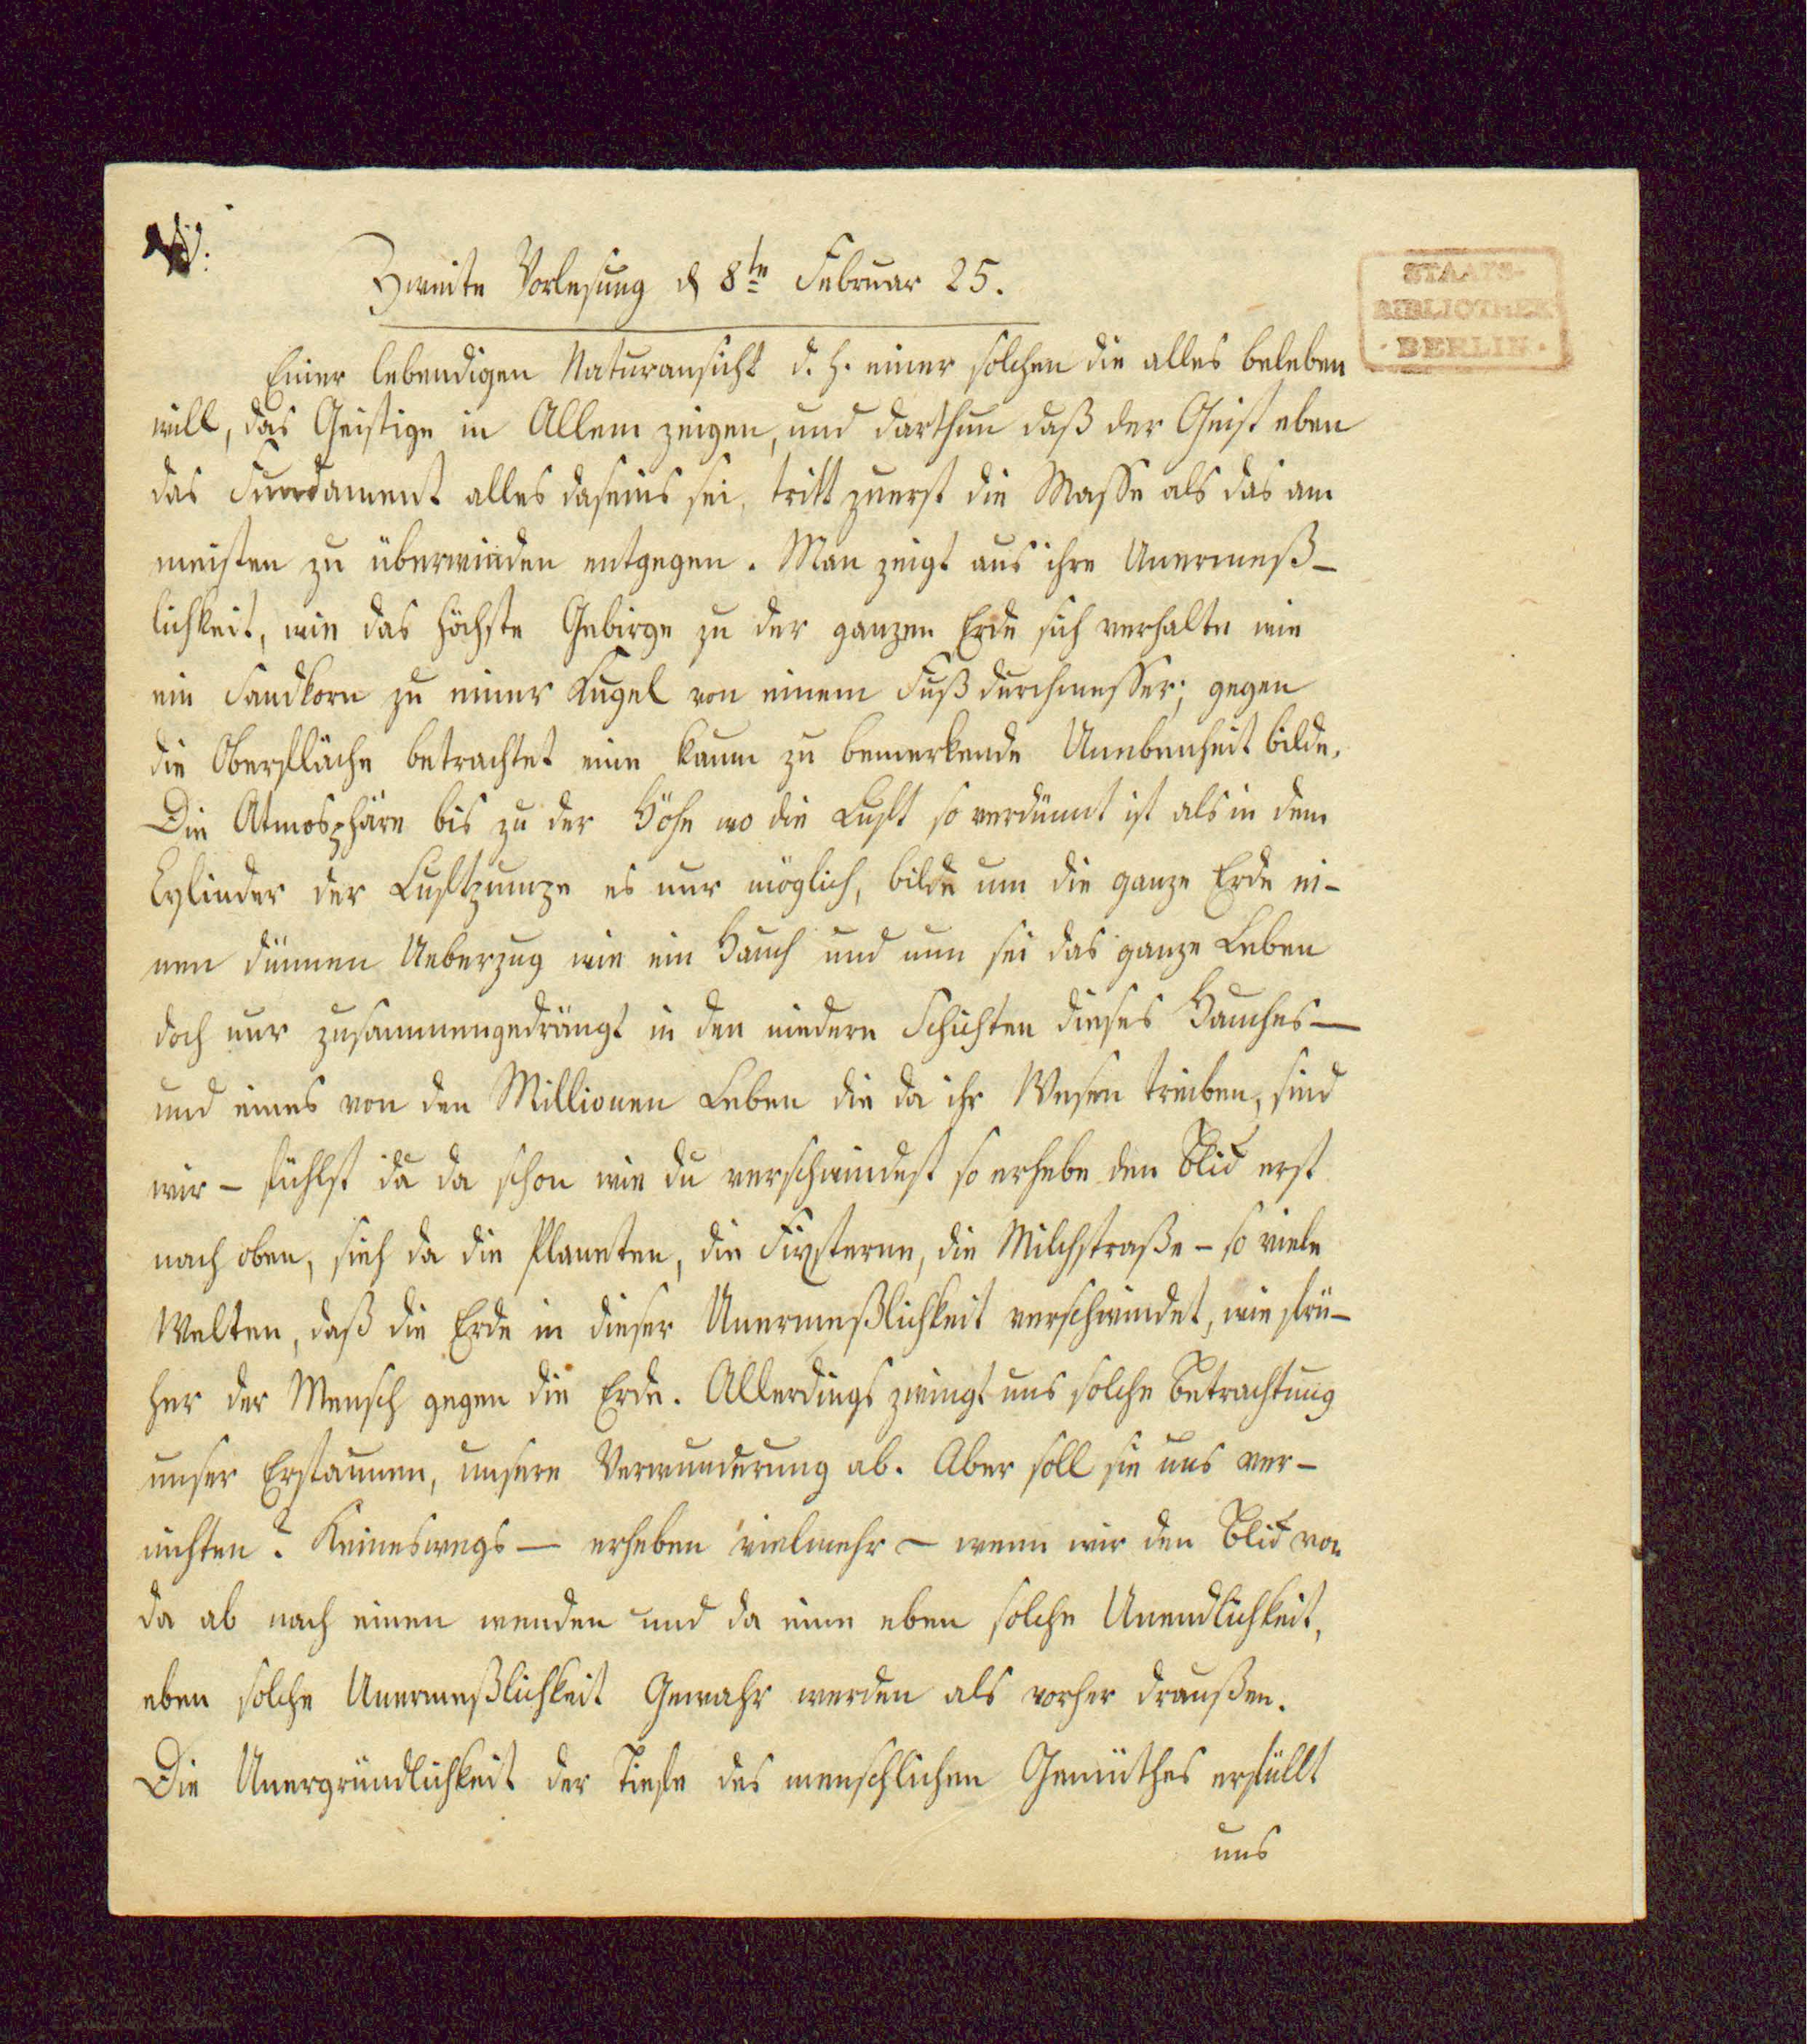 Zweite Vorlesung d 8te Februar 25.
STAATS-
BIBLIOTHEK
· BERLIN ·
Einer lebendigen Naturansicht d. h. einer solchen die alles beleben
will, das Geistige in Allem zeigen, und darthun daß der Geist eben
das Fundament alles daseins sei, tritt zuerst die Masse als das am
meisten zu überwinden entgegen. Man zeigt aus ihre Unermeß-
lichkeit, wie das höchste Gebirge zu der ganzen Erde sich verhalte wie
ein Sandkorn zu einer Kugel von einem Fuß durchmesser; gegen
die Oberfläche betrachtet eine kaum zu bemerkende Unebenheit bilde.
Die Atmosphäre bis zu der Höhe wo die Luft so verdünnt ist als in dem
Cylinder der Luftpumpe es nur möglich, bilde um die ganze Erde ei-
nen dünnen Ueberzug wie ein Hauch und nun sei das ganze Leben
doch nur zusammengedrängt in den niedern Schichten dieses Hauches—
und eines von den Millionen Leben die da ihr Wesen treiben, sind
wir – fühlst du da schon wie du verschwindest so erhebe den Blick erst
nach oben, sieh da die Planeten, die Fixsterne, die Milchstraße – so viele
Welten, daß die Erde in dieser Unermeßlichkeit verschwindet, wie frü-
her der Mensch gegen die Erde. Allerdings zwingt uns solche Betrachtung
unser Erstaunen, unsere Verwunderung ab. Aber soll sie uns ver-
nichten? Keineswegs — erheben vielmehr – wenn wir den Blick von
da ab nach einen wenden und da eine eben solche Unendlichkeit,
eben solche Unermeßlichkeit Gewahr werden als vorher draußen.
Die Unergründlichkeit der Tiefe des menschlichen Gemüthes erfüllt
uns